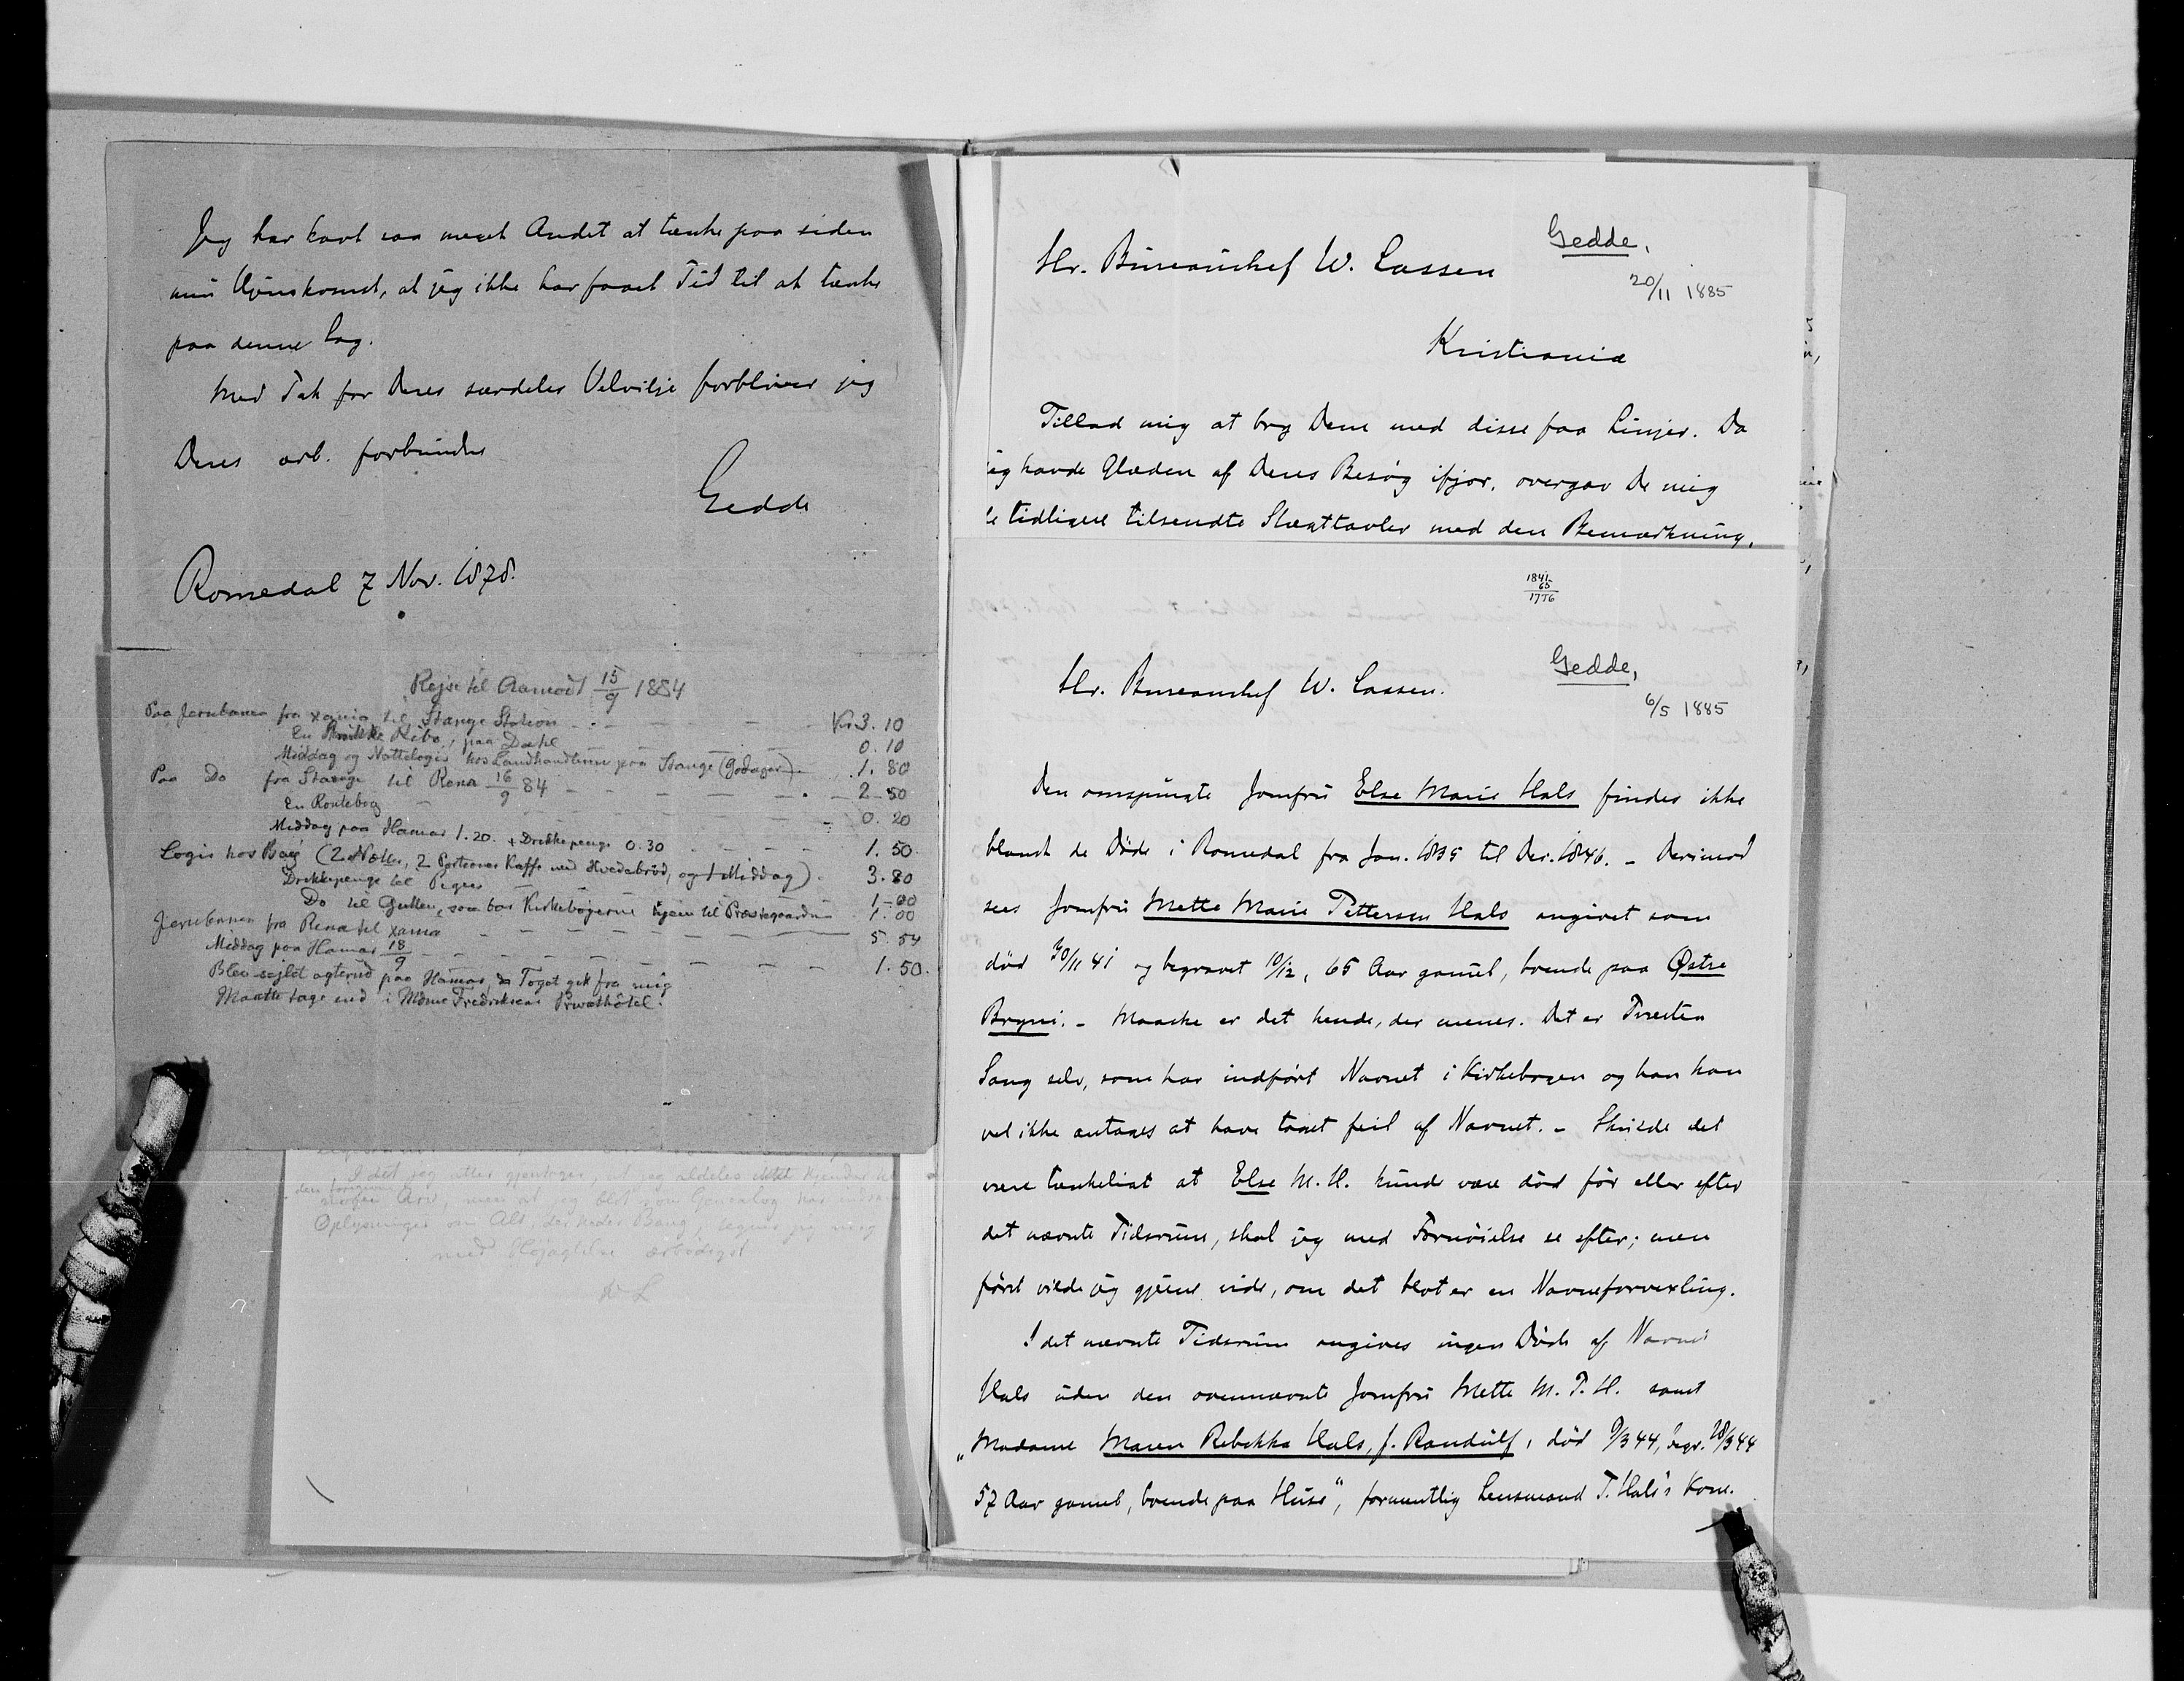 Jeg har havt saa meget Andet at tænke paa siden
min Hjemkomst, at jeg ikke har faaet Tid til at tænke
paa denne Sag.
Med Tak for Deres særdeles Velvilje forbliver jeg
Deres ærb. forbundne
Gedde
Romedal 7 Nov. 1878.
Rejse til Aamodt 15/9 1884
Paa Jernbanen fra Xania til Stange Station - - - Kr 3.10
En Ribs, paa Dahl - - - 0.10
Middag og Nattelogis hos Landhandleren paa Stange (Godager) - 1.80
Paa Do fra Stange til Rena 16/9 84 - - - 2-50
En Routebog - - - 0.20
Middag paa Hamar 1.20. + Drikkepenge 0.30 - - - 1.50
Logis hos Bang (2 Nætter, 2 Portioner Kaffe med Hvedebrød, og 1 Middag) - 3.80
Drikkepenge til Pigen - - - 1-00
Do til Gutten, som bar Kirkebøgerne igjen til Præstegaarden - 1.00
Jernbanen fra Rena til Xania - - - 5.54
Middag paa Hamar 18/9 - - - 1.50.
Blev sejlet agterud paa Hamar, da Toget gik fra mig
Maatte tage ind i Mdme Fredriksens Privathôtel.
I det jeg atter gjentager, at jeg aldeles ikke kjender til
nogen Arv, men at jeg blot som Genealog har
Oplysninger om Alt, der heder Bang, tegner jeg mig
med Højagtelse ærbødigst
W L
Hr. Bureauchef W. Lassen
Gedde,
20/11 1885
Kristiania
Tillad mig at bry Dem med disse faa Linjer. Da
jeg havde Glæden af Deres Besøg ifjor, overgav De mig
de tidligere tilsendte Slægttavler med den Bemærkning,
1841
65
1776
Hr. Bureauchef W. Lassen.
Gedde,
6/5 1885
Den omspurgte Jomfru Else Marie Hals findes ikke
blandt de Døde i Romedal fra Jan. 1835 til Dec. 1846. - Derimod
sees Jomfru Mette Marie Pettersen Hals angivet som
død 30/11 41 og begravet 10/12, 65 Aar gammel, boende paa Østre
Bryni. - Maaske er det hende, der menes. Det er Provsten
Lang selv, som har indført Navnet i Kirkebogen og han kan
vel ikke antages at have taget feil af Navnet. - Skulde det
være tænkeligt at Else M. H. kunde være død før eller efter
det nævnte Tidsrum, skal jeg med Fornøielse se efter; men
først vilde jeg gjerne vide, om det blot er en Navneforvexling.
I det nævnte Tidsrum angives ingen Døde af Navnet
Hals uden den ovennævnte Jomfru Mette M. P. H. samt
„Madame Maren Rebekka Hals, f. Randulf, død 9/3 44, begr. 20/3 44
57 Aar gammel, boende paa Huse", formentlig Lensmand P. Hals's Kone.